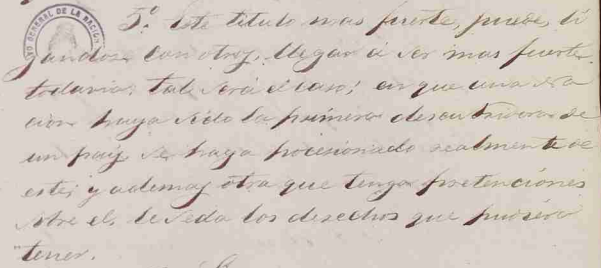 GENERAL DE LA NACION
5.º Este titulo mas fuerte, puede, li
gandose con otros, llegar á ser mas fuerte
todavia; tal será el caso; en que una na
cion haya sido la primera descubridora de
un pais, se haya posesionado realmente de
este; y ademas otra que tenga pretenciones
sobre el, le ceda los derechos que pudiera
tener.